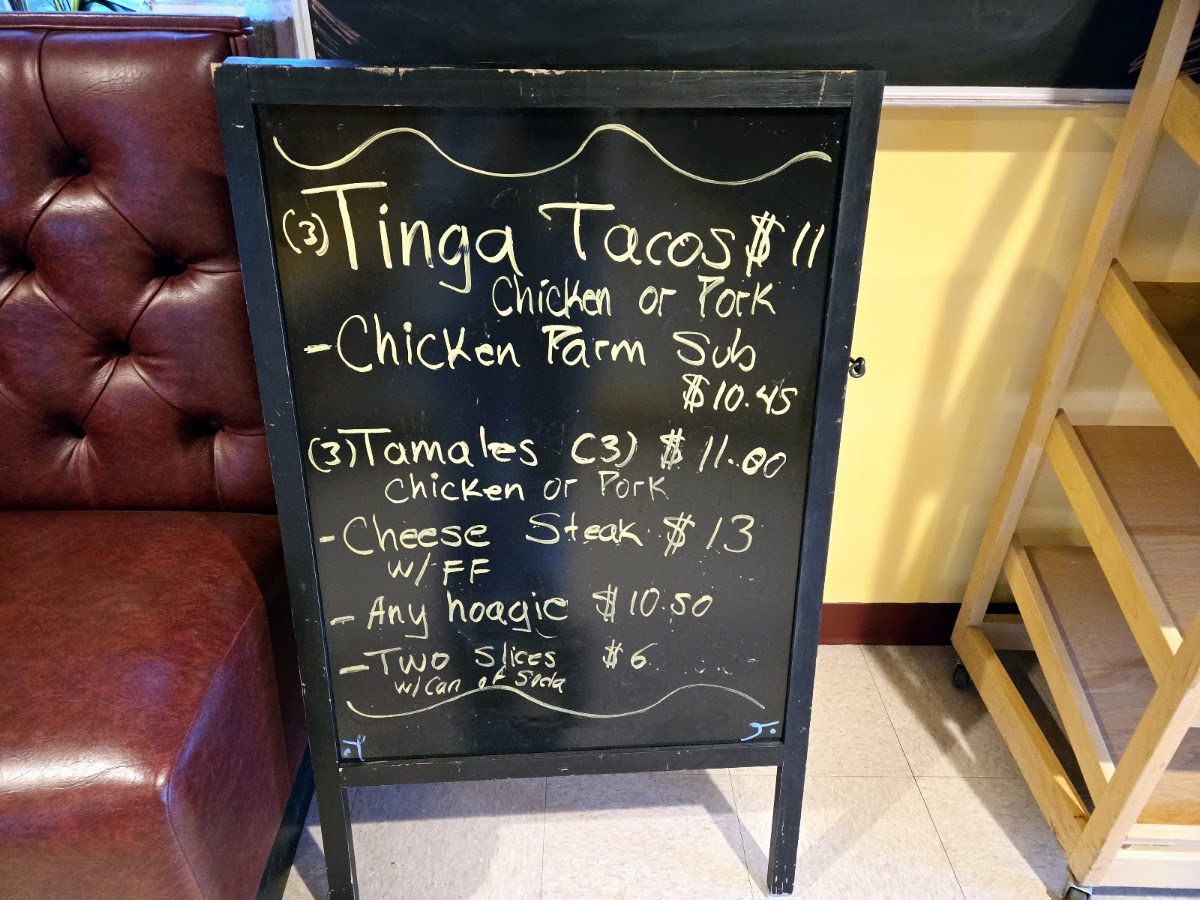 (3) Tinga Tacos $11
Chicken or Pork
- Chicken Parm Sub
$10.45
(3) Tamales (3) $11.00
Chicken or Pork
- Cheese Steak $13
w/ FF
- Any hoagie $10.50
- Two Slices $6
w/ Can of Soda